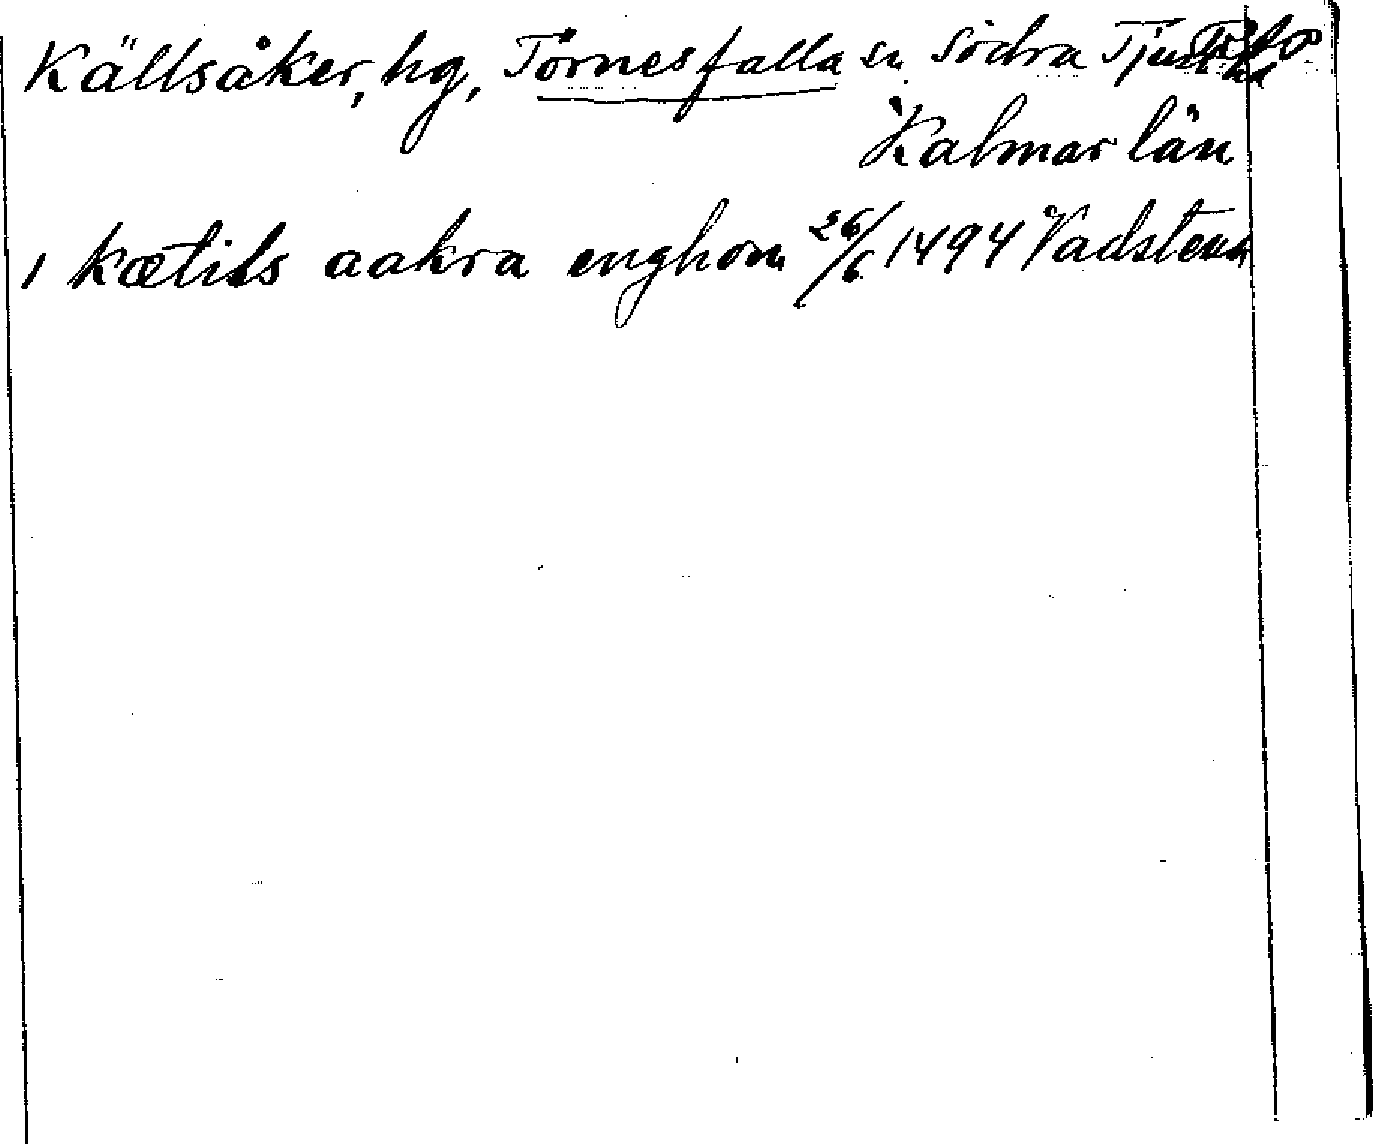 Källsåker, hg, Törnesfalla sn Södra Tjust hd
Kalmar län
i kætils aakra enghom 26/6 1494 Vadstena